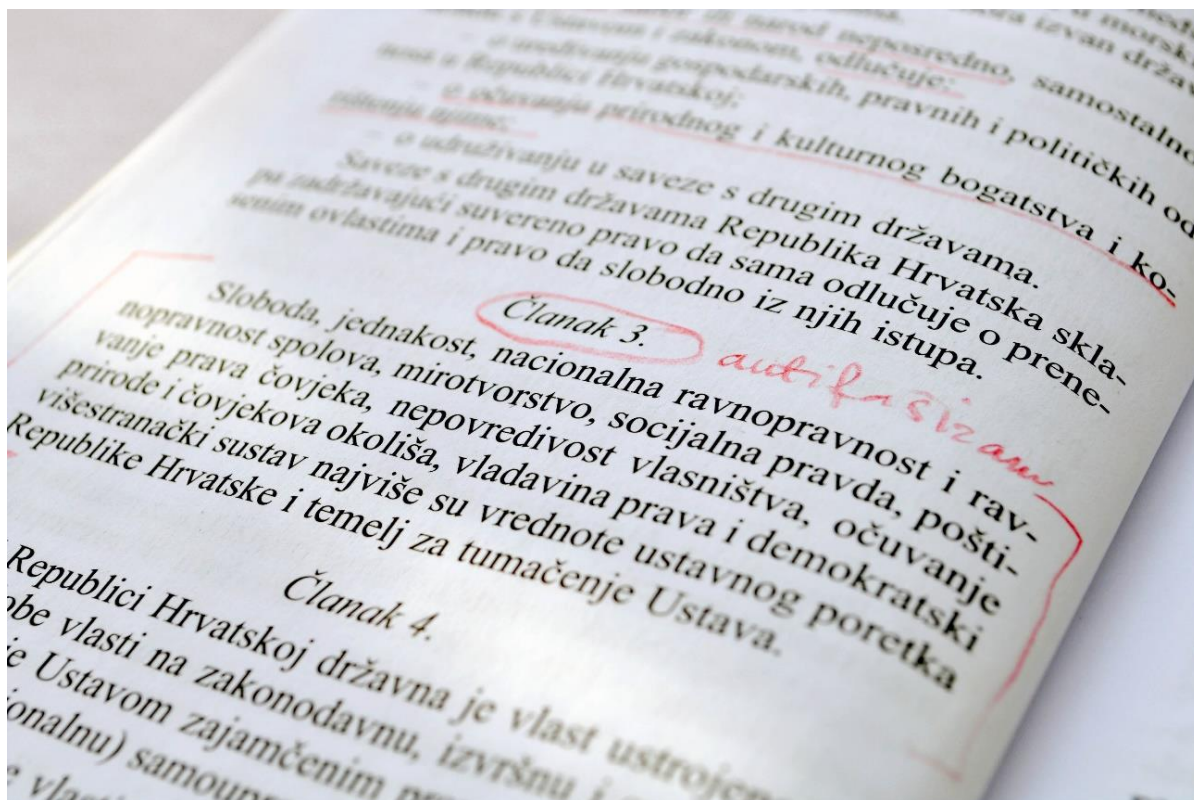 narod neposredno, samostalno
s Ustavom i zakonom, odlučuje:
– o uređivanju gospodarskih, pravnih i političkih od
nosa u Republici Hrvatskoj;
– o očuvanju prirodnog i kulturnog bogatstva i ko-
rištenju njime;
– o udruživanju u saveze s drugim državama.
Saveze s drugim državama Republika Hrvatska skla-
pa zadržavajući suvereno pravo da sama odlučuje o prene-
senim ovlastima i pravo da slobodno iz njih istupa.
Članak 3. antifašizam
Sloboda, jednakost, nacionalna ravnopravnost i rav-
nopravnost spolova, mirotvorstvo, socijalna pravda, pošti-
vanje prava čovjeka, nepovredivost vlasništva, očuvanje
prirode i čovjekova okoliša, vladavina prava i demokratski
višestranački sustav najviše su vrednote ustavnog poretka
Republike Hrvatske i temelj za tumačenje Ustava.
Članak 4.
Republici Hrvatskoj državna je vlast ustrojena
obe vlasti na zakonodavnu, izvršnu i
je Ustavom zajamčenim
onalnu) samoupr
e vlasti